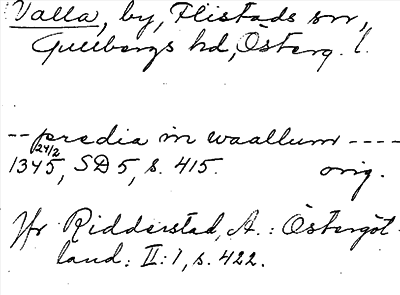 Valla, by, Flistads sn,
Gullbergs hd, Österg. l.
-- predia in waallum ----
24/2
1345, SD 5, s. 415. orig.
Jfr Ridderstad, A.: Östergöt-
land: II:1, s. 422.